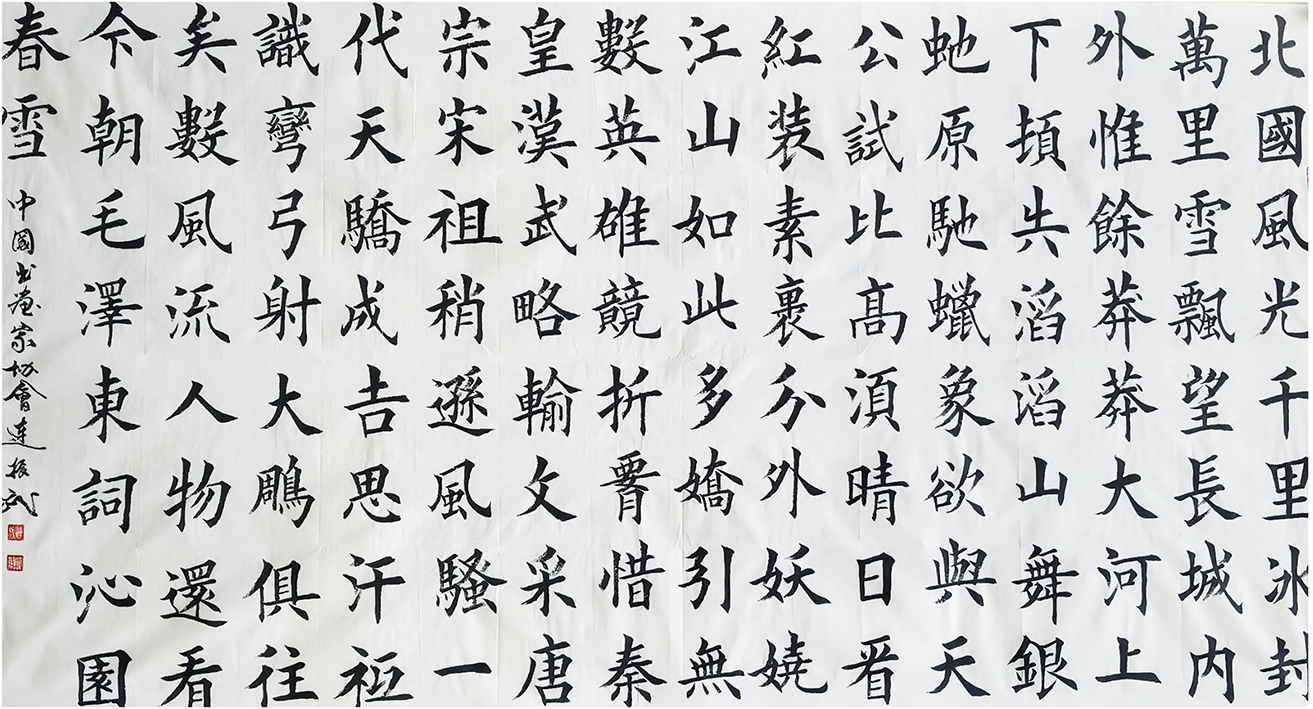 北國風光千里冰封
萬里雪飄望長城内
外惟餘莽莽大河上
下頓失滔滔山舞銀
虵原馳蠟象欲與天
公試比髙須晴日看
紅装素裹分外妖嬈
江山如此多嬌引無
數英雄競折腰惜秦
皇漢武略輸文采唐
宗宋祖稍遜風騷一
代天驕成吉思汗祇
識彎弓射大鵰俱往
矣數風流人物還看
今朝毛澤東詞沁園
春雪
中國书畫家协會连振武